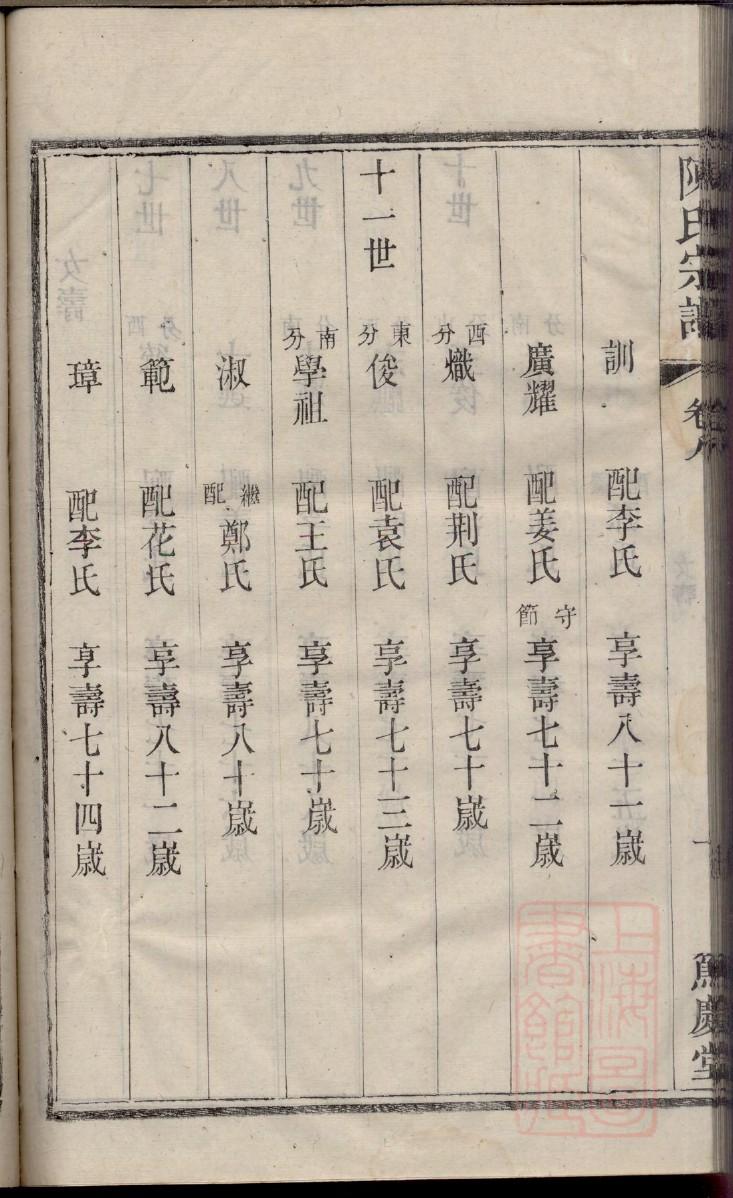 陳氏宗譜 卷八 一 篤慶堂
訓 配李氏 享壽八十一歲
廣耀 配姜氏 守節 享壽七十二歲
西分 熾 配荆氏 享壽七十歲
十一世 東分 俊 配袁氏 享壽七十三歲
南分 學祖 配王氏 享壽七十歲
淑 繼配 鄭氏 享壽八十歲
範 配花氏 享壽八十二歲
璋 配李氏 享壽七十四歲
上海圖書館藏